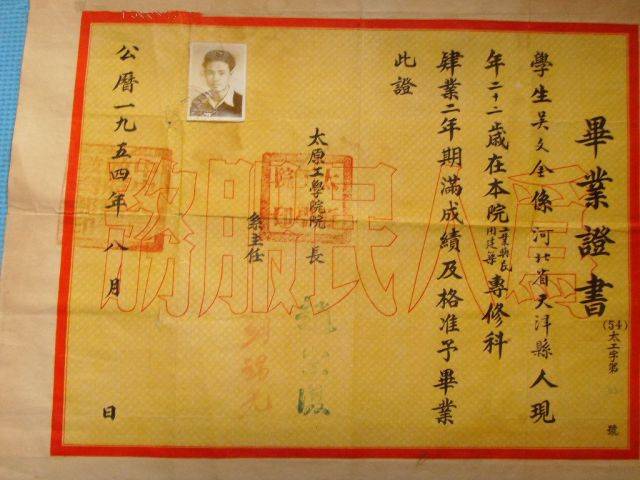 畢業證書
(54)太工字第 號
學生吳文全係河北省天津縣人現
年二十二歲在本院工業與民用建築專修科
肄業二年期滿成績及格准予畢業
此證
太原工學院院長
系主任
公曆一九五四年八月 日
為人民服務